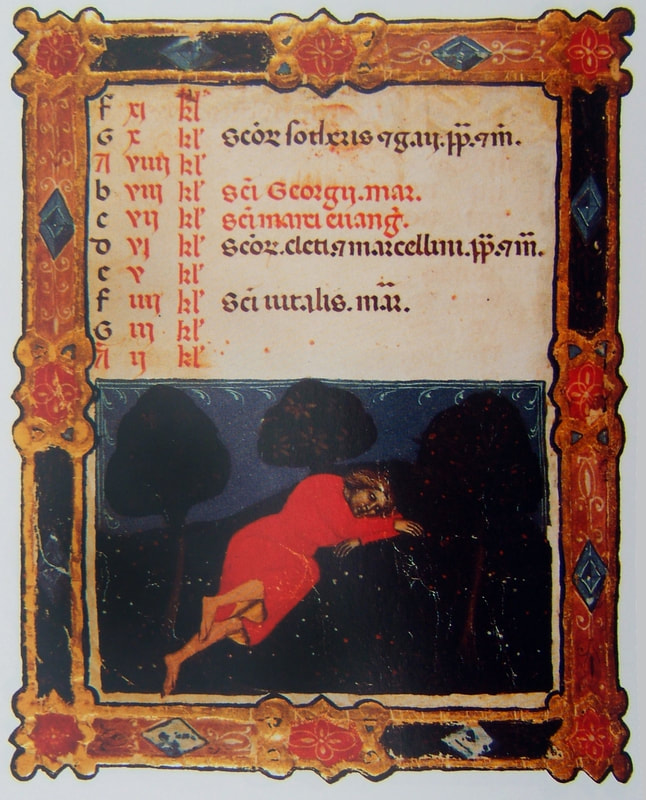 f xi kl'
G x kl' Scor sotheris ⁊ gaij. pp. ⁊ m̄.
A viiij kl'
b viij kl' Sci Georgij. mar.
c vij kl' Sci marci euanḡ.
D vj kl' Scor. cleti. ⁊ marcellini. pp. ⁊ m̄.
e v kl'
f iiij kl' Sci uitalis. mar̄.
G iij kl'
A ij kl'